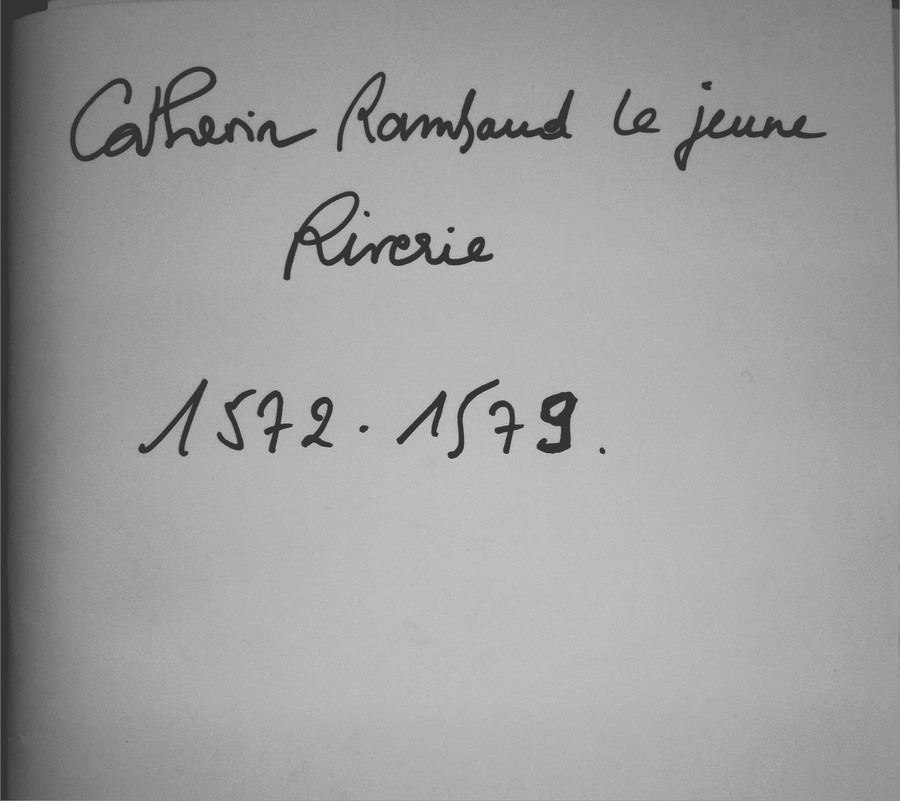 Catherin Rambaud le jeune
Riverie
1572. 1579.